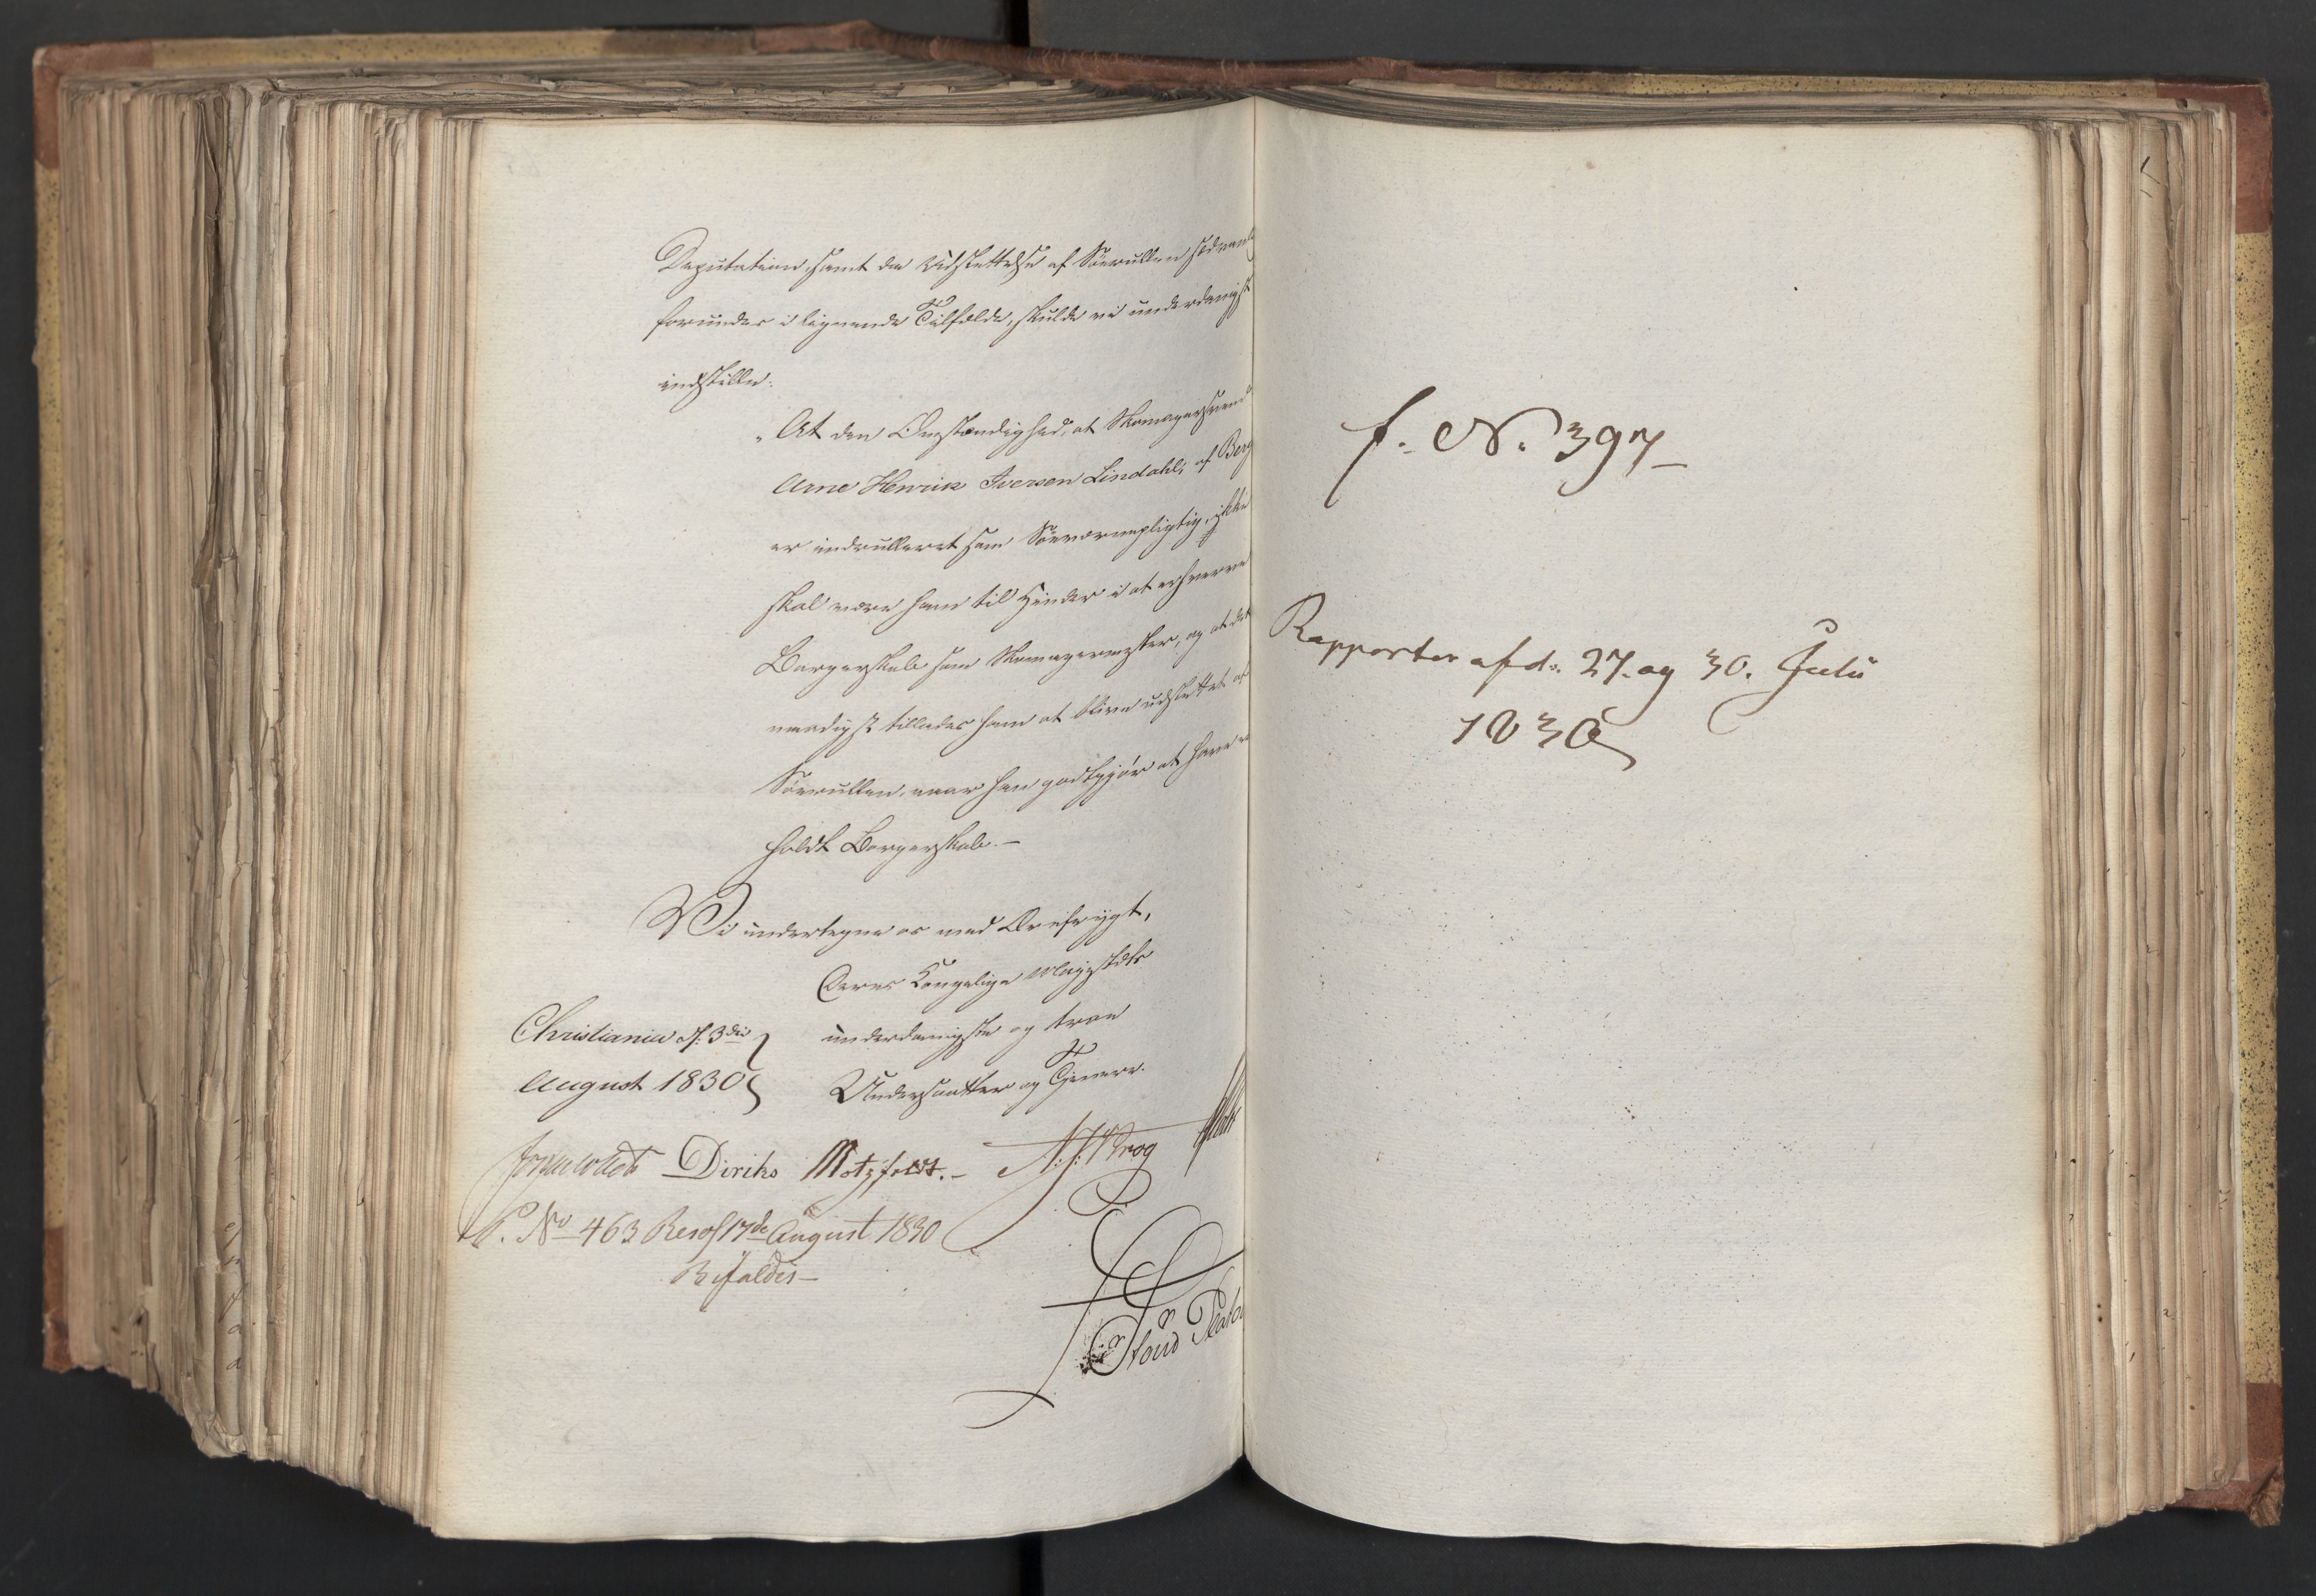 Deputation, samt da Udslettelse af Söerullen sædvanl
forundes i lignende Tilfælde, skulde vi underdanigst
indstille:
"At den Omstændighed, at Skomagersvend
Arne Henrik Iversen Lindahl, af Berg
er indrulleret som Söeværnepligtig, ikke
skal være ham til Hinder i at erhverve
Borgerskab som Skomagermester, og at det
naadigst tillades ham at blive udslettet af
Söerullen, naar han godtgjör at have er
holdt Borgerskab.—
Vi undertegne os med Ærefrygt,
Deres Kongelige Majestæts
underdanigste og troe
Undersaatter og Tjenere.
Christiania d: 3die
August 1830
Diriks Motzfeldt.— N. J. Krog
P. No 463 Resol 17de August 1830
Bifaldes—
f. N. 397—
Rapporter af d. 27. og 30. Juli
1830